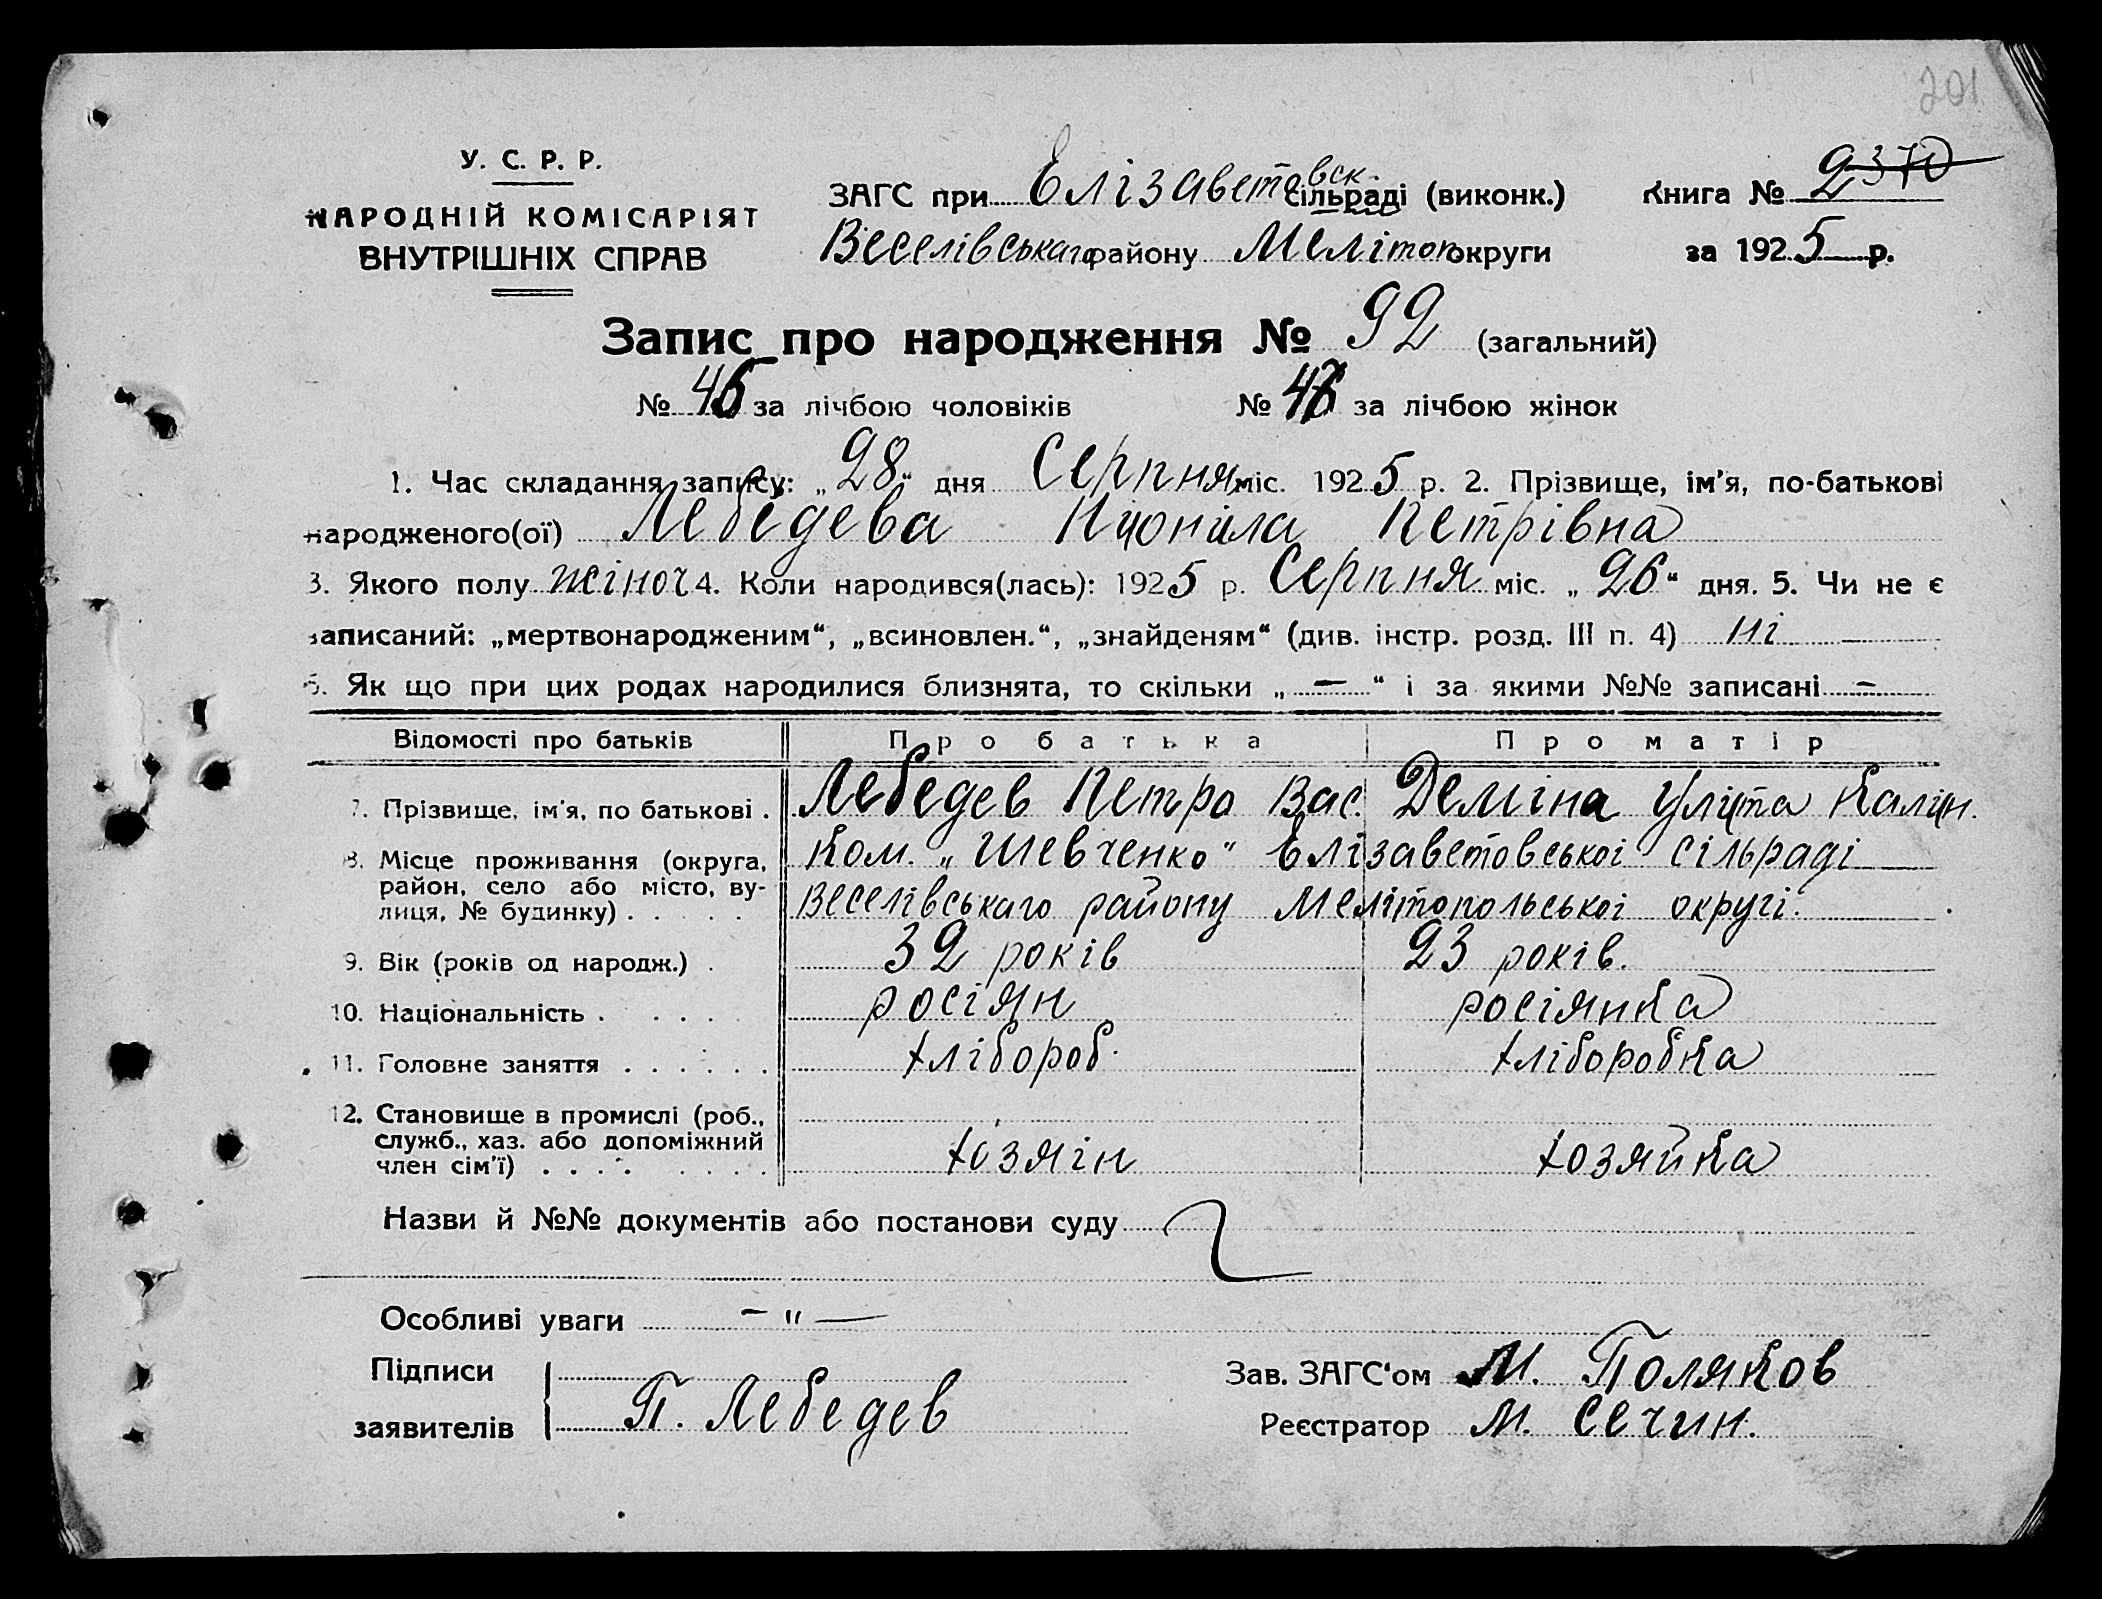 201
У. С. Р. Р.
НАРОДНІЙ КОМІСАРІЯТ
ВНУТРІШНІХ СПРАВ
ЗАГС при Елізаветовск. сільраді (виконк.)
Веселівськаго району Мелітоп округи
Книга № 2370
за 1925 р.
Запис про народження № 92 (загальний)
№ 45 за лічбою чоловіків № 47 за лічбою жінок
1. Час складання запису: „28" дня Серпня міс. 1925 р. 2. Прізвище, ім'я, по-батькові
народженого(ої) Лебедева Неоніла Петрівна
3. Якого полу жіноч 4. Коли народився(лась): 1925 р. Серпня міс. „26" дня. 5. Чи не є
записаний: „мертвонародженим", „всиновлен.", „знайденям" (див. інстр. розд. III п. 4) ні —
6. Як що при цих родах народилися близнята, то скільки „—" і за якими №№ записані —
Відомості про батьків Про батька Про матір
7. Прізвище, ім'я, по батькові . Лебедев Петро Вас. Деміна Уліта Калін.
8. Місце проживання (округа, район, село або місто, вулиця, № будинку) . . . . . Ком. „Шевченко" Елізаветовської сільраді
Веселівськаго району Мелітопольської округі.
9. Вік (років од народж.) . 32 років 23 років.
10. Національність . . . . . росіян росіянка
11. Головне заняття . . . . . . хлібороб. хліборобка
12. Становище в промислі (роб., служб., хаз. або допоміжний член сім'ї) . . . . . . . . хозяін хозяйка
Назви й №№ документів або постанови суду
Особливі уваги — " —
Підписи заявителів П. Лебедев
Зав. ЗАГС'ом М. Поляков
Реєстратор М. Сечин.